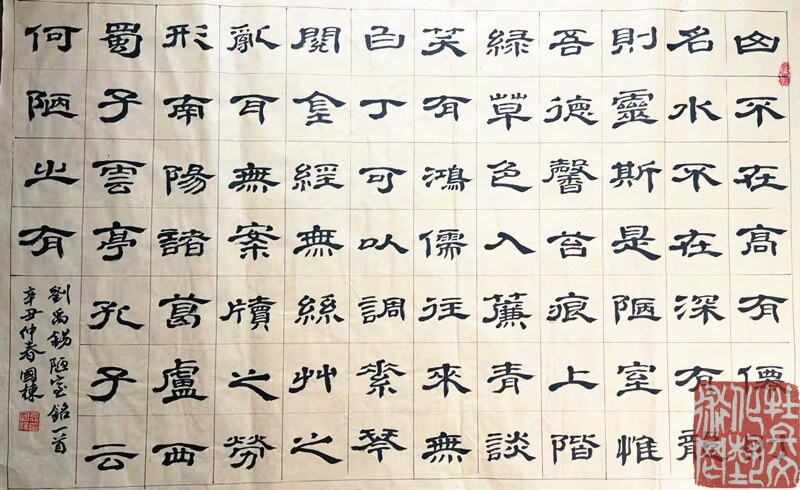 山不在高有僊則
名水不在深有龍
則靈斯是陋室惟
吾德馨苔痕上階
綠草色入簾青談
笑有鴻儒往來無
白丁可以調素琴
閱金經無絲竹之
亂耳無案牘之勞
形南陽諸葛盧西
蜀子雲亭孔子云
何陋之有
劉禹錫陋室銘一首
辛丑仲春國棟